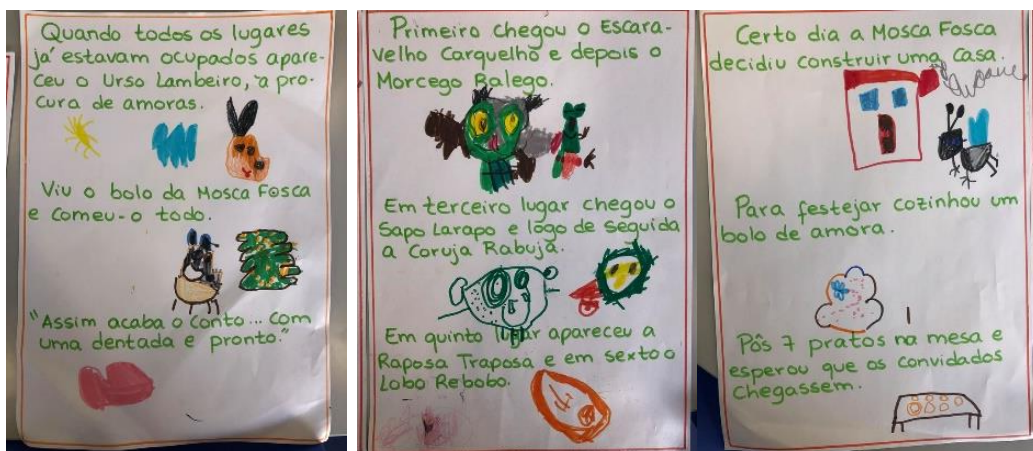 Quando todos os lugares
já estavam ocupados apare-
ceu o Urso Lambeiro, à pro-
cura de amoras.
Viu o bolo da Mosca Fosca
e comeu-o todo.
"Assim acaba o conto... com
uma dentada e pronto."
Primeiro chegou o Escara-
velho Carquelho e depois o
Morcego Ralego.
Em terceiro lugar chegou o
Sapo Larapo e logo de seguida
a Coruja Rabuja.
Em quinto lugar apareceu a
Raposa Traposa e em sexto o
Lobo Rebobo.
Certo dia a Mosca Fosca
decidiu construir uma casa.
Para festejar cozinhou um
bolo de amora.
Pôs 7 pratos na mesa e
esperou que os convidados
chegassem.